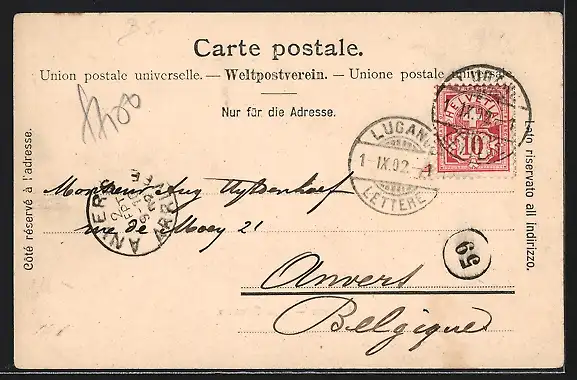 Carte postale.
Union postale universelle. — Weltpostverein. — Unione postale universale
Nur für die Adresse.
Côté réservé à l'adresse.
Lato riservato all'indirizzo.
HELVETIA
10
LUGANO
1-IX.92.-1
LETTERE
Monsieur Aug
rue de Moey 21
Anvers
Belgique
ANVERS
ARRIVEE
59